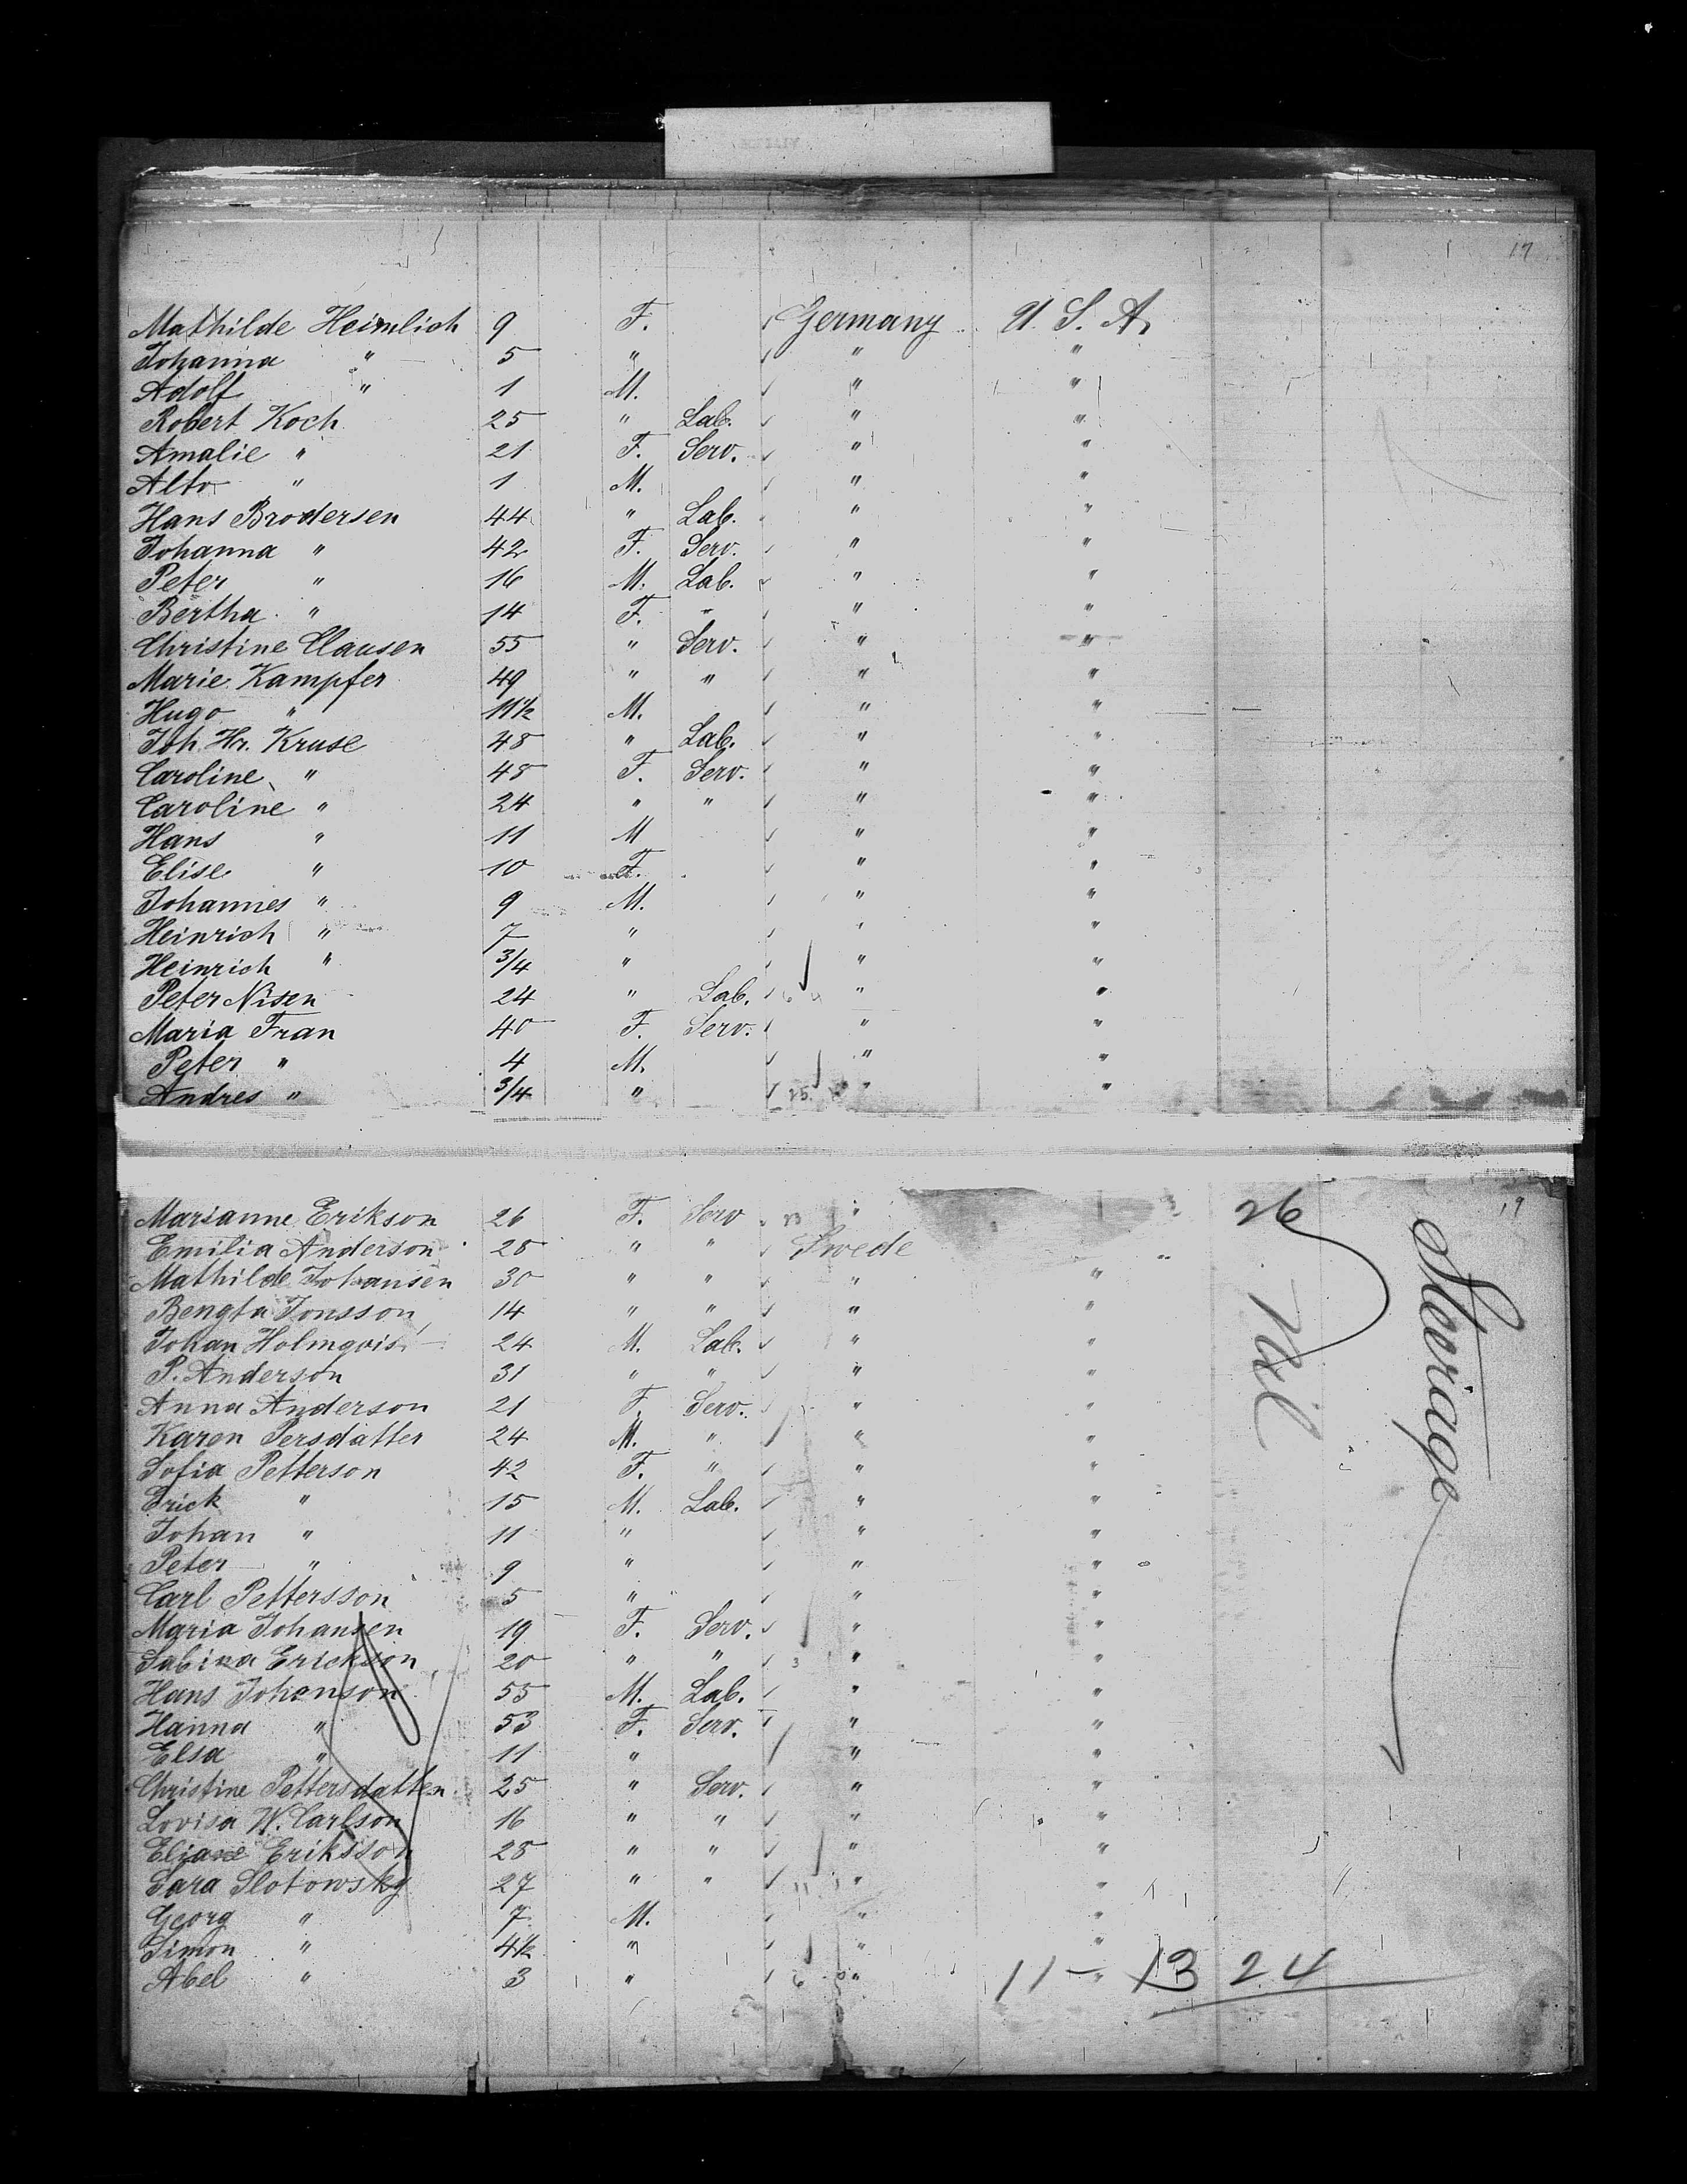 17
Mathilde Heimlich 9 F. Germany U. S. A.
Johanna " 5 " " "
Adolf " 1 M. " "
Robert Koch 25 " Lab. " "
Amalie " 21 F. Serv. " "
Alto " 1 M. " "
Hans Brodersen 44 " Lab. " "
Johanna " 42 F. Serv. " "
Peter " 16 M. Lab. " "
Bertha " 14 F. " " "
Christine Clausen 55 " Serv. " "
Marie Kampfer 49 " " " "
Hugo " 11½ M. " "
Joh. Hr. Kruse 48 " Lab. " "
Caroline " 48 F. Serv. " "
Caroline " 24 " " " "
Hans " 11 M " "
Elise " 10 F. " "
Johannes " 9 M. " "
Heinrich " 7 " " "
Heinrich " 3/4 " " "
Peter Nisen 24 " Lab. " "
Maria Fran 40 F. Serv. " "
Peter " 4 M. " "
Andres " 3/4 " 25 " "
19
Marianne Erikson 26 F. Serv " 26
Emilia Anderson 28 " " Swede "
Mathilde Johansen 30 " " " "
Bengta Jonsson 14 " " " "
Johan Holmqvis 24 M. Lab. " "
P. Anderson 31 " " " "
Anna Anderson 21 F. Serv. " "
Karen Persdatter 24 M. " " "
Sofia Petterson 42 F. " " "
Erick " 15 M. Lab. " "
Johan " 11 " " "
Peter " 9 " " "
Carl Pettersson 5 " " "
Maria Johansen 19 F. Serv. " "
Sabina Erickson 20 " " 3 " "
Hans Johanson 55 M. Lab. " "
Hanna " 53 F. Serv. " "
Elsa " 11 " " "
Christine Pettersdatten 25 " Serv. " "
Lovisa W. Carlson 16 " " " "
Eliane Eriksson 28 " " " "
Sara Slotowsky 27 " " 11 " "
Georg " 7 M. " "
Simon " 4½ " " "
Abel " 3 " 6 " "
11 - 13 24
Steerage